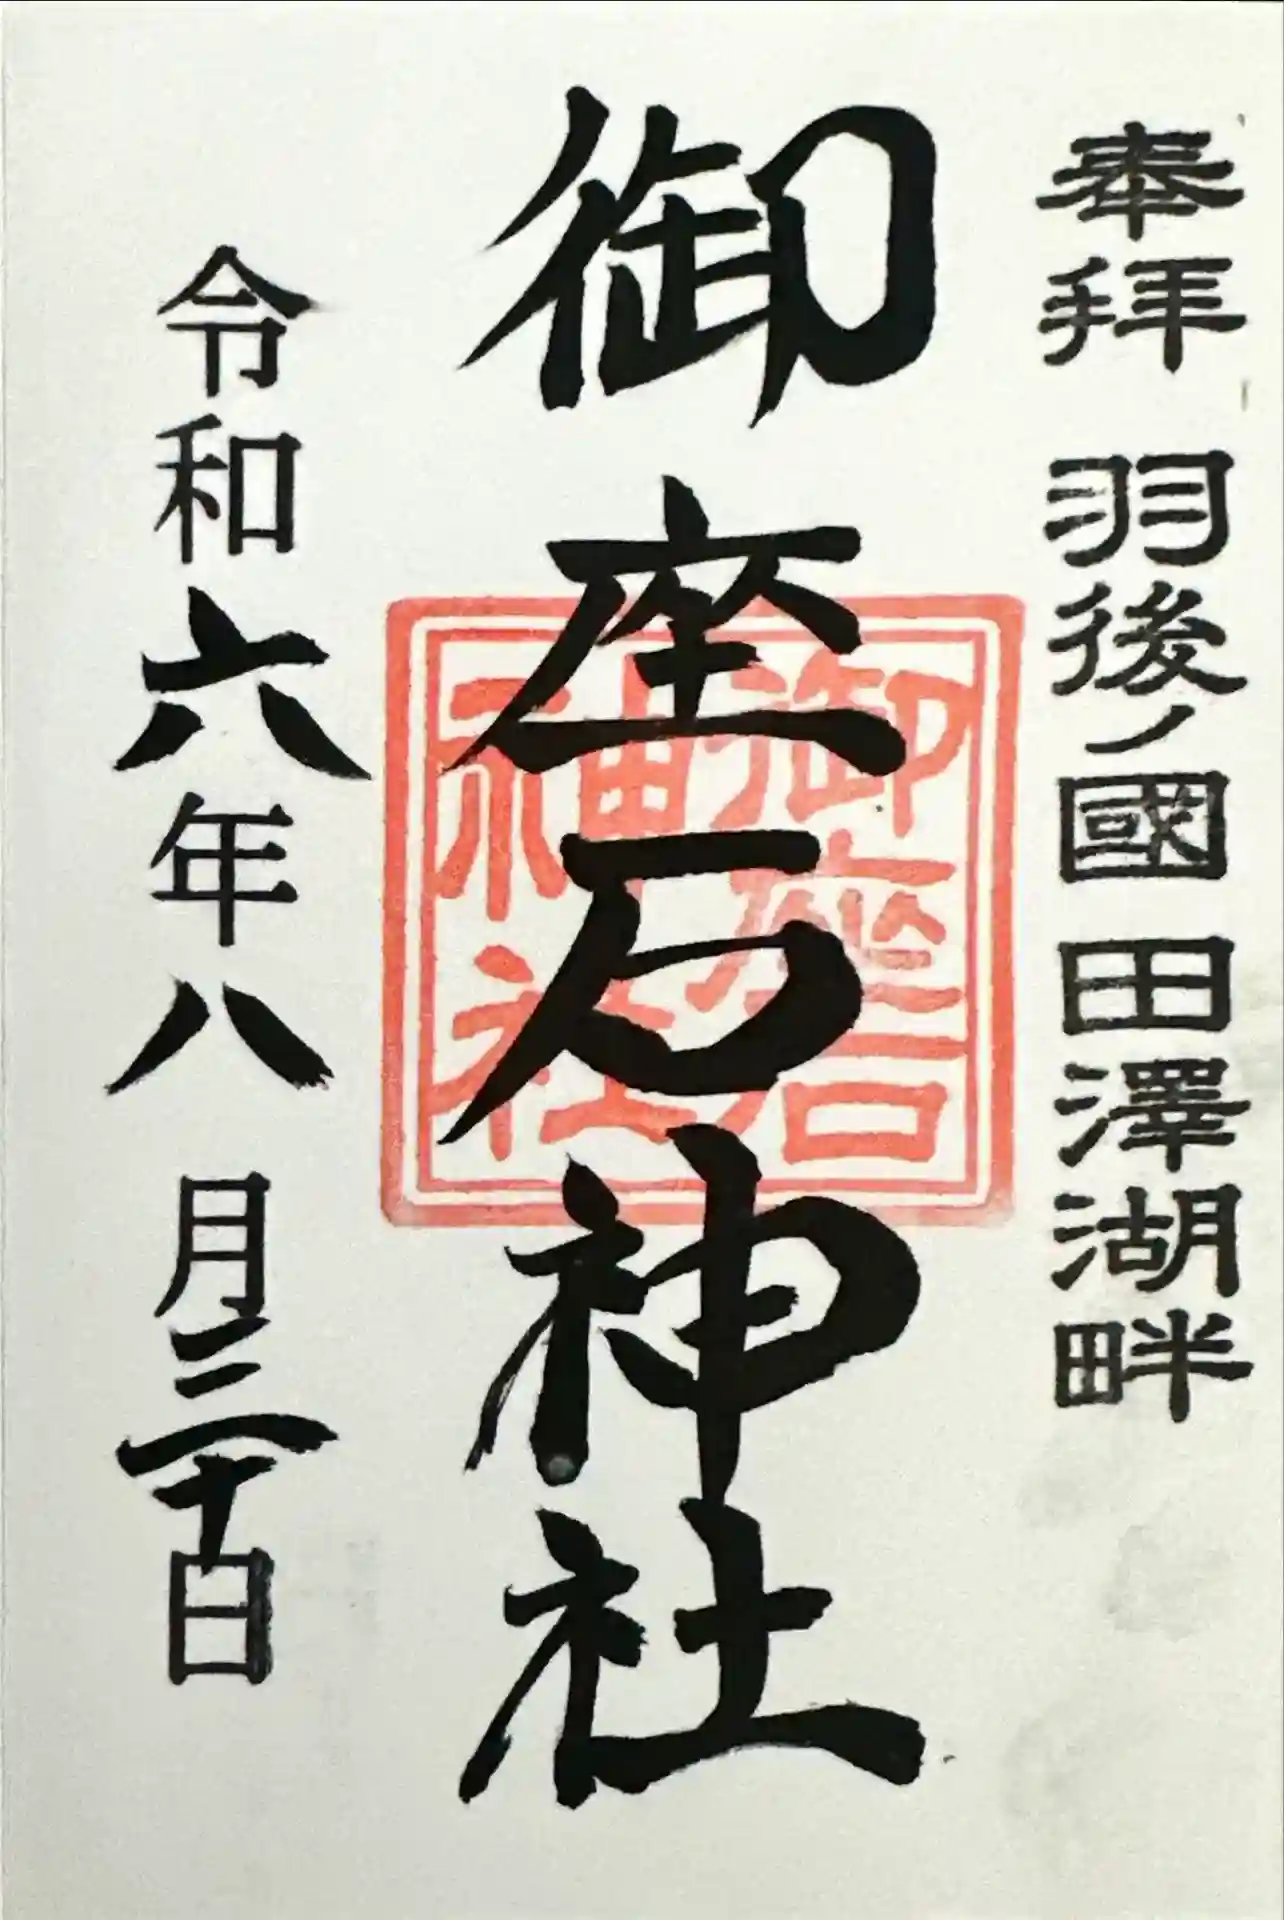 奉拜 羽後ノ國 田澤湖畔
御座石神社
御座石
神社
令和六年八月三十日